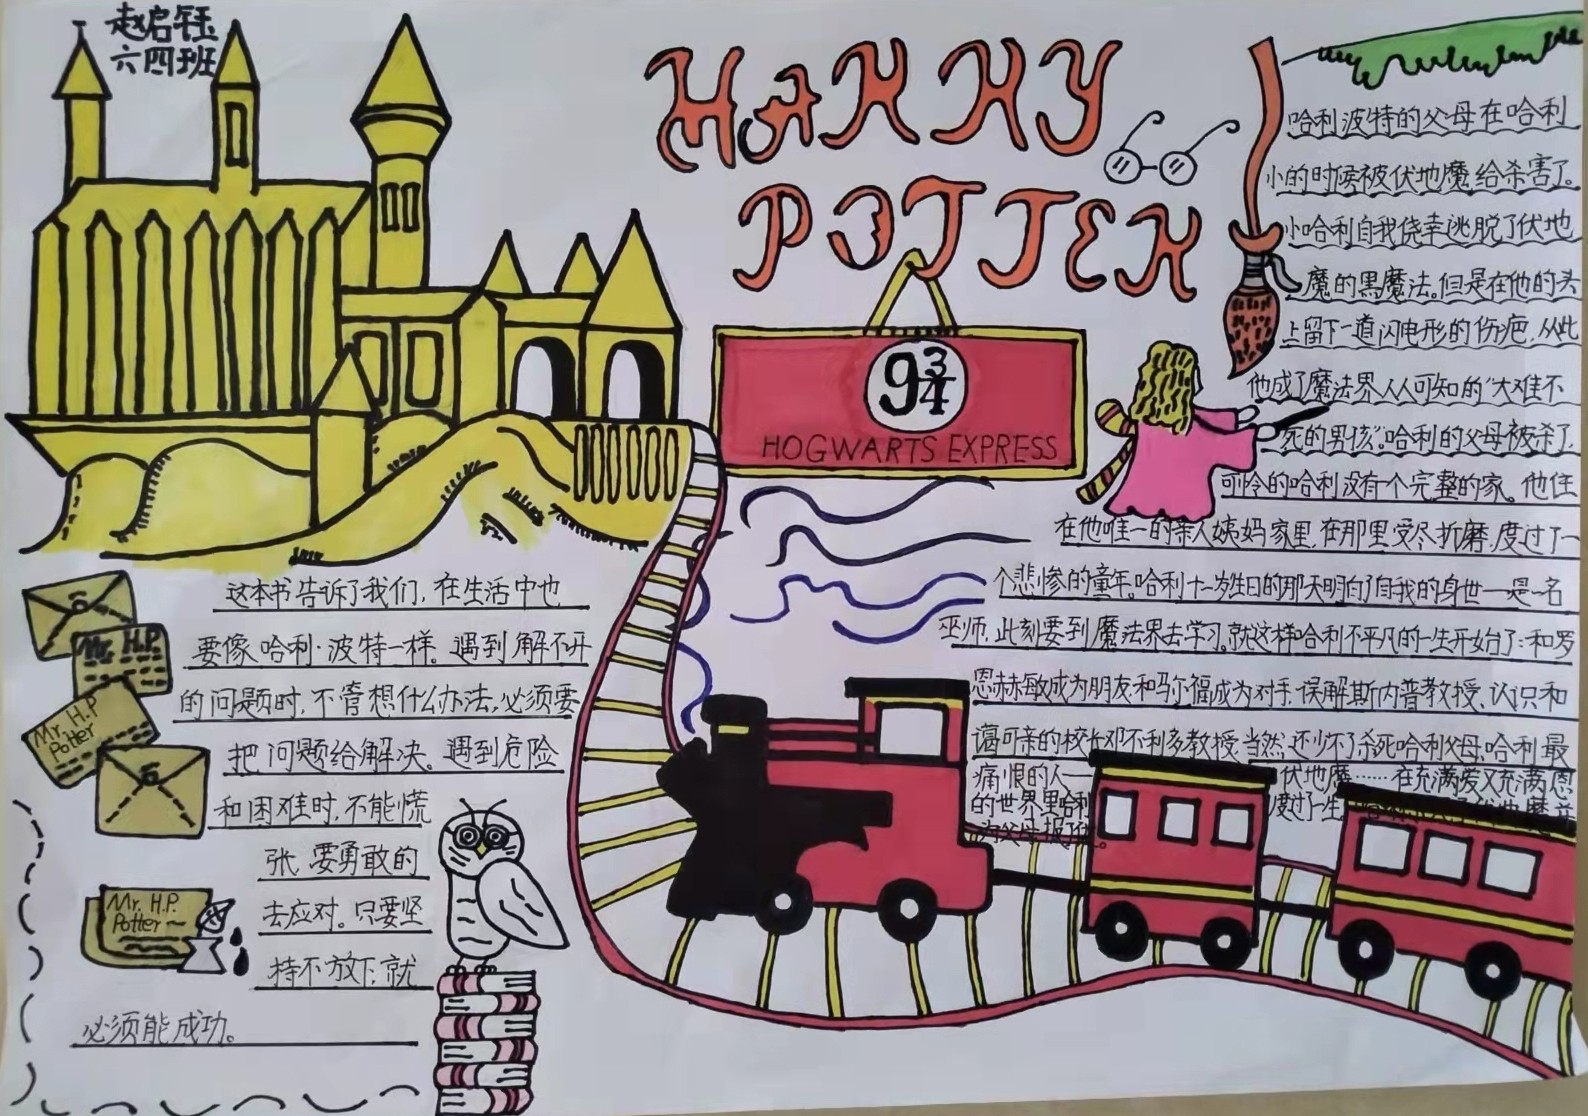 赵启钰
六四班
HARRY
POTTER
9¾
HOGWARTS EXPRESS
哈利波特的父母在哈利
小的时候被伏地魔给杀害了。
小哈利自我侥幸逃脱了伏地
魔的黑魔法。但是在他的头
上留下一道闪电形的伤疤,从此
他成了魔法界人人可知的“大难不
死的男孩”。哈利的父母被杀了,
可怜的哈利没有一个完整的家。他住
在他唯一的亲人姨妈家里,在那里受尽折磨,度过了一
个悲惨的童年。哈利十一岁生日的那天明白了自我的身世——是一名
巫师,此刻要到魔法界去学习。就这样哈利不平凡的一生开始了:和罗
恩赫敏成为朋友和马尔福成为对手,误解斯内普教授、认识和
蔼可亲的校长邓不利多教授,当然还少不了杀死哈利父母,哈利最
痛恨的人一 伏地魔……在充满爱又充满恩
的世界里哈利 度过了一生
为父母报了仇。
这本书告诉了我们,在生活中也
要像哈利·波特一样。遇到解不开
的问题时,不管想什么办法,必须要
把问题给解决。遇到危险
和困难时,不能慌
张,要勇敢的
去应对。只要坚
持不放下,就
必须能成功。
Mr. H.P.
Mr. H.P
Potter
Mr. H.P.
Potter